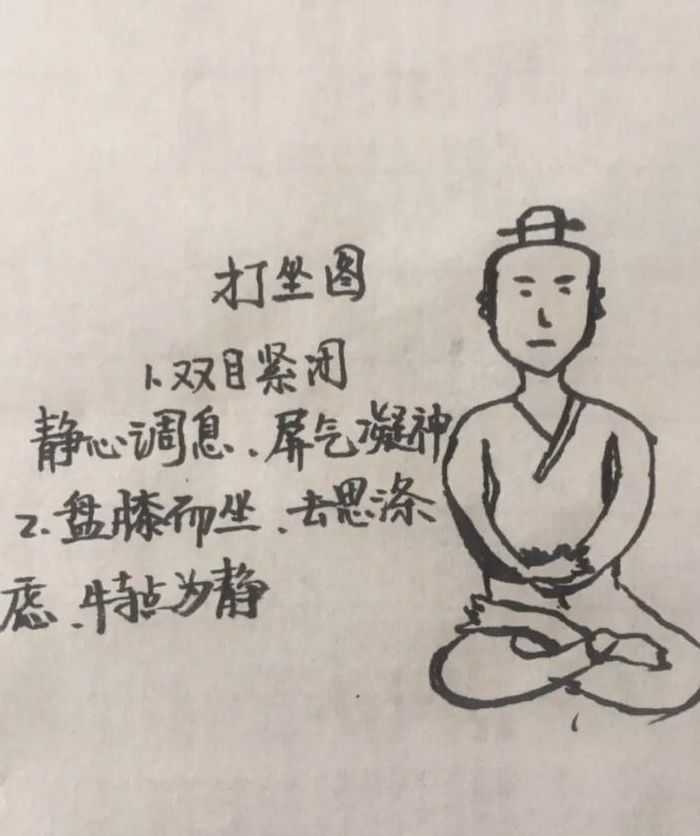 打坐图
1.双目紧闭
静心调息、屏气凝神
2.盘膝而坐、去思涤
虑、特点为静